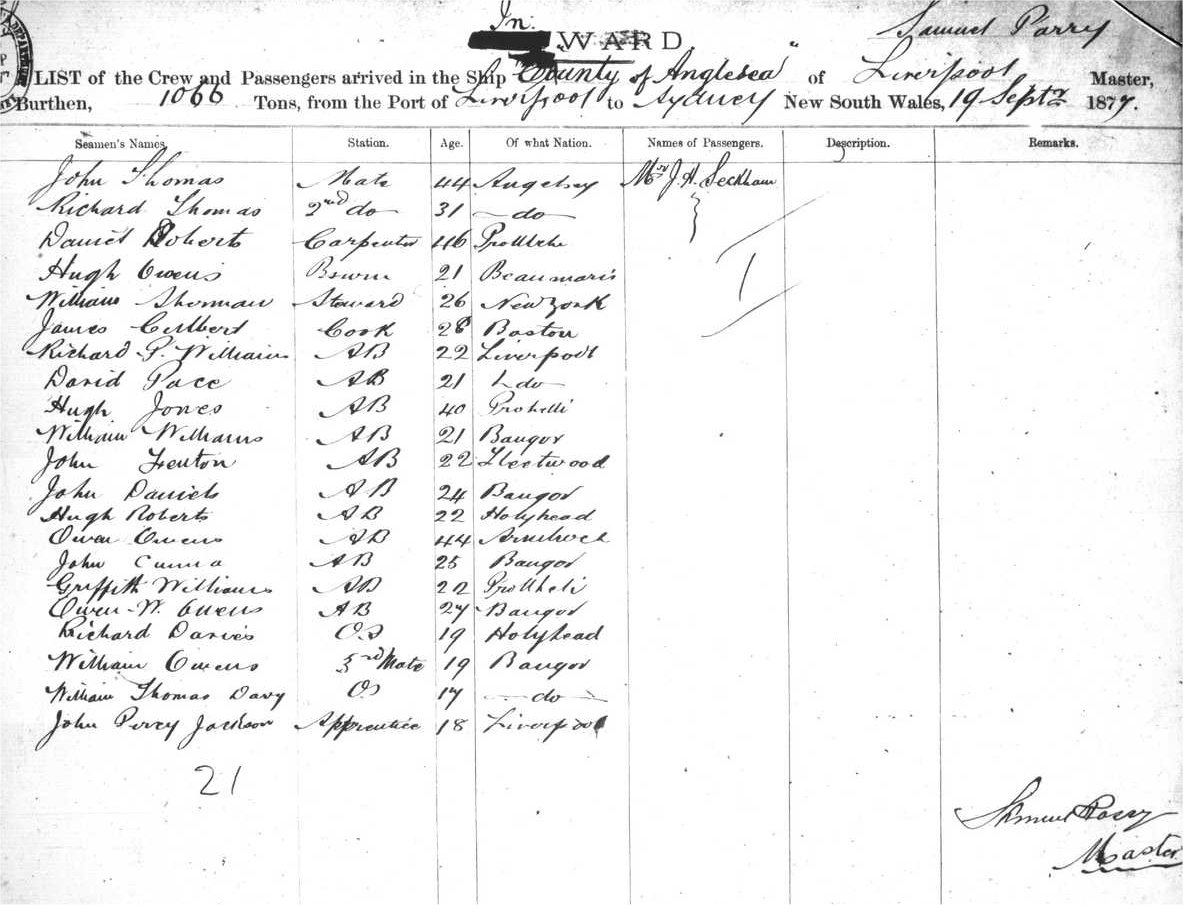 In
WARD
Samuel Parry
LIST of the Crew and Passengers arrived in the Ship "County of Anglesea" of Liverpool Master,
Burthen, 1066 Tons, from the Port of Liverpool to Sydney New South Wales, 19 Septr 1877.
Seamen's Names. Station. Age. Of what Nation. Names of Passengers. Description. Remarks.
John Thomas Mate 44 Angelsey Mrs J. A. Seckham
Richard Thomas 2nd do 31 do
Daniel Roberts Carpenter 46 Pwllheli
Hugh Owens 21 Beaumaris
William Sherman Steward 26 New York
James Cuthbert Cook 28 Boston
Richard P. Williams AB 22 Liverpool
David Pace AB 21 do
Hugh Jones AB 40
William Williams AB 21 Bangor
John Fenton AB 22 Fleetwood
John Daniels AB 24 Bangor
Hugh Roberts AB 22 Holyhead
Owen Owens AB 44
John AB 25 Bangor
Griffith Williams AB 22 Pwllheli
Owen W. Owens AB 27 Bangor
Richard Davies OS 19 Holyhead
William Owens 3rd Mate 19 Bangor
William Thomas Davy OS 17 do
John Percy Jackson Apprentice 18 Liverpool
21
Samuel Parry
Master